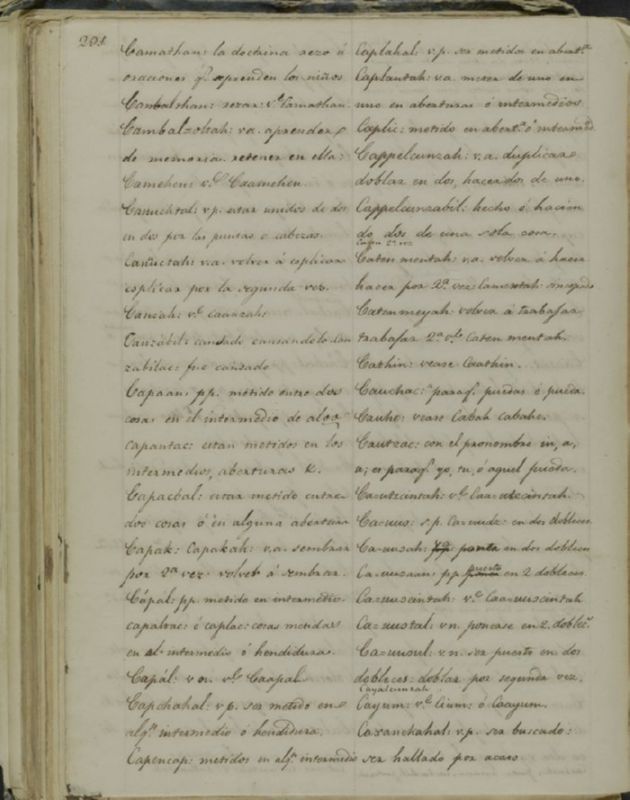 201.
Camathan: la doctrina rezo ú
oraciones qe aprenden los niños
Cambalthan: rezar: ve Camathan.
Cambalzobah: va. aprender
de memoria. retener en ella:
Camehen: ve Caamehen.
Canuchtal: vp. estar unidos de dos
en dos por las puntas o cabezas.
Canuctah: va. volver á esplicar
esplicar por la segunda vez.
Canzah: ve caanzah:
Canzabil: cansado
zabilac: fue cansado
Capaan: pp. metido entre dos
cosas en el intermedio de
capantac: estan metidos en los
intermedios, aberturas &.
Capacbal: estar metido entre
dos cosas ó en alguna abertura
Capak: Capakah: va. sembrar
por 2a vez volver á sembrar.
Cápál: pp. metido en intermedio.
capalrac: é caplac: cosas metidas
en el intermedio ó hendiduras.
Capál: vn. ve Caapal.
Capchahal: vp. ser metido en
algn intermedio ó hendidura.
Capencap: metidos en algn intermedio
Caplahal: vp. ser metidos en abertas
Caplantah: va. meter de uno en
uno en aberturas ó intermedios
Caplic: metido en aberta ó intermedo
Cappelcunzah: va. duplicar
doblar en dos, hacer dos de uno.
Cappelcunzabil: hecho é hacian
do dos de una sola cosa.
Caten mentah: va. volver á hacer
hacer por 2a vez:
Catenmeyah: volver á trabajar
trabajar 2a ve Caten mentah.
Cathin: vease Caathin.
Cauchac: paraqe puedas ó pueda.
Cauhe: vease Cabah cabahe.
Cautzac: con el pronombre in, a,
a; es paraqe yo, tu, ó aquel pueda.
Ca-utzcintah: ve Caa-utzcintah.
Ca-uus: s.p. Ca-uudz: en dos dobleces
Ca-uusah: en dos dobleces
Ca-uusaan: pp. puesto en 2 dobleces.
Ca-uuscintah: ve Caa-uuscintah
Ca-uustal: vn. ponerse en 2. doblecs.
Ca-uusul: vn. ser puesto en dos
dobleces: doblar por segunda vez.
Cayalcunzah
Cayum: ve Cium: ó Caayum.
Caxanchahal: vp. ser buscado:
ser hallado por acaso